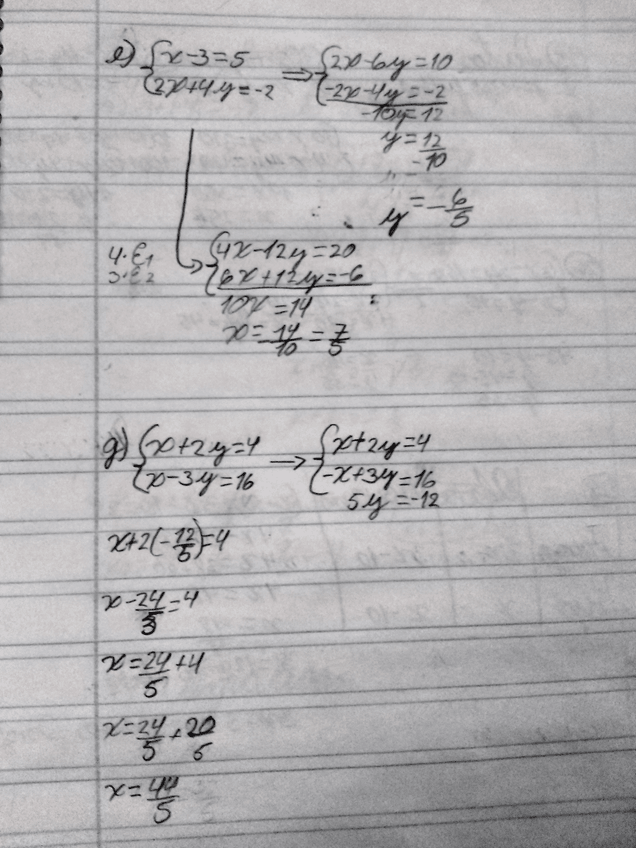 e) {x-3=5 => {2x-6y=10
{2x+4y=-2 {-2x-4y=-2
-10y=12
y=12/-10
y=-6/5
4·E1 {4x-12y=20
3·E2 {6x+12y=-6
10x=14
x=14/10=7/5
g) {x+2y=4 → {x+2y=4
{x-3y=16 {-x+3y=16
5y=-12
x+2(-12/5)=4
x-24/5=4
x=24/5+4
x=24/5+20/5
x=44/5